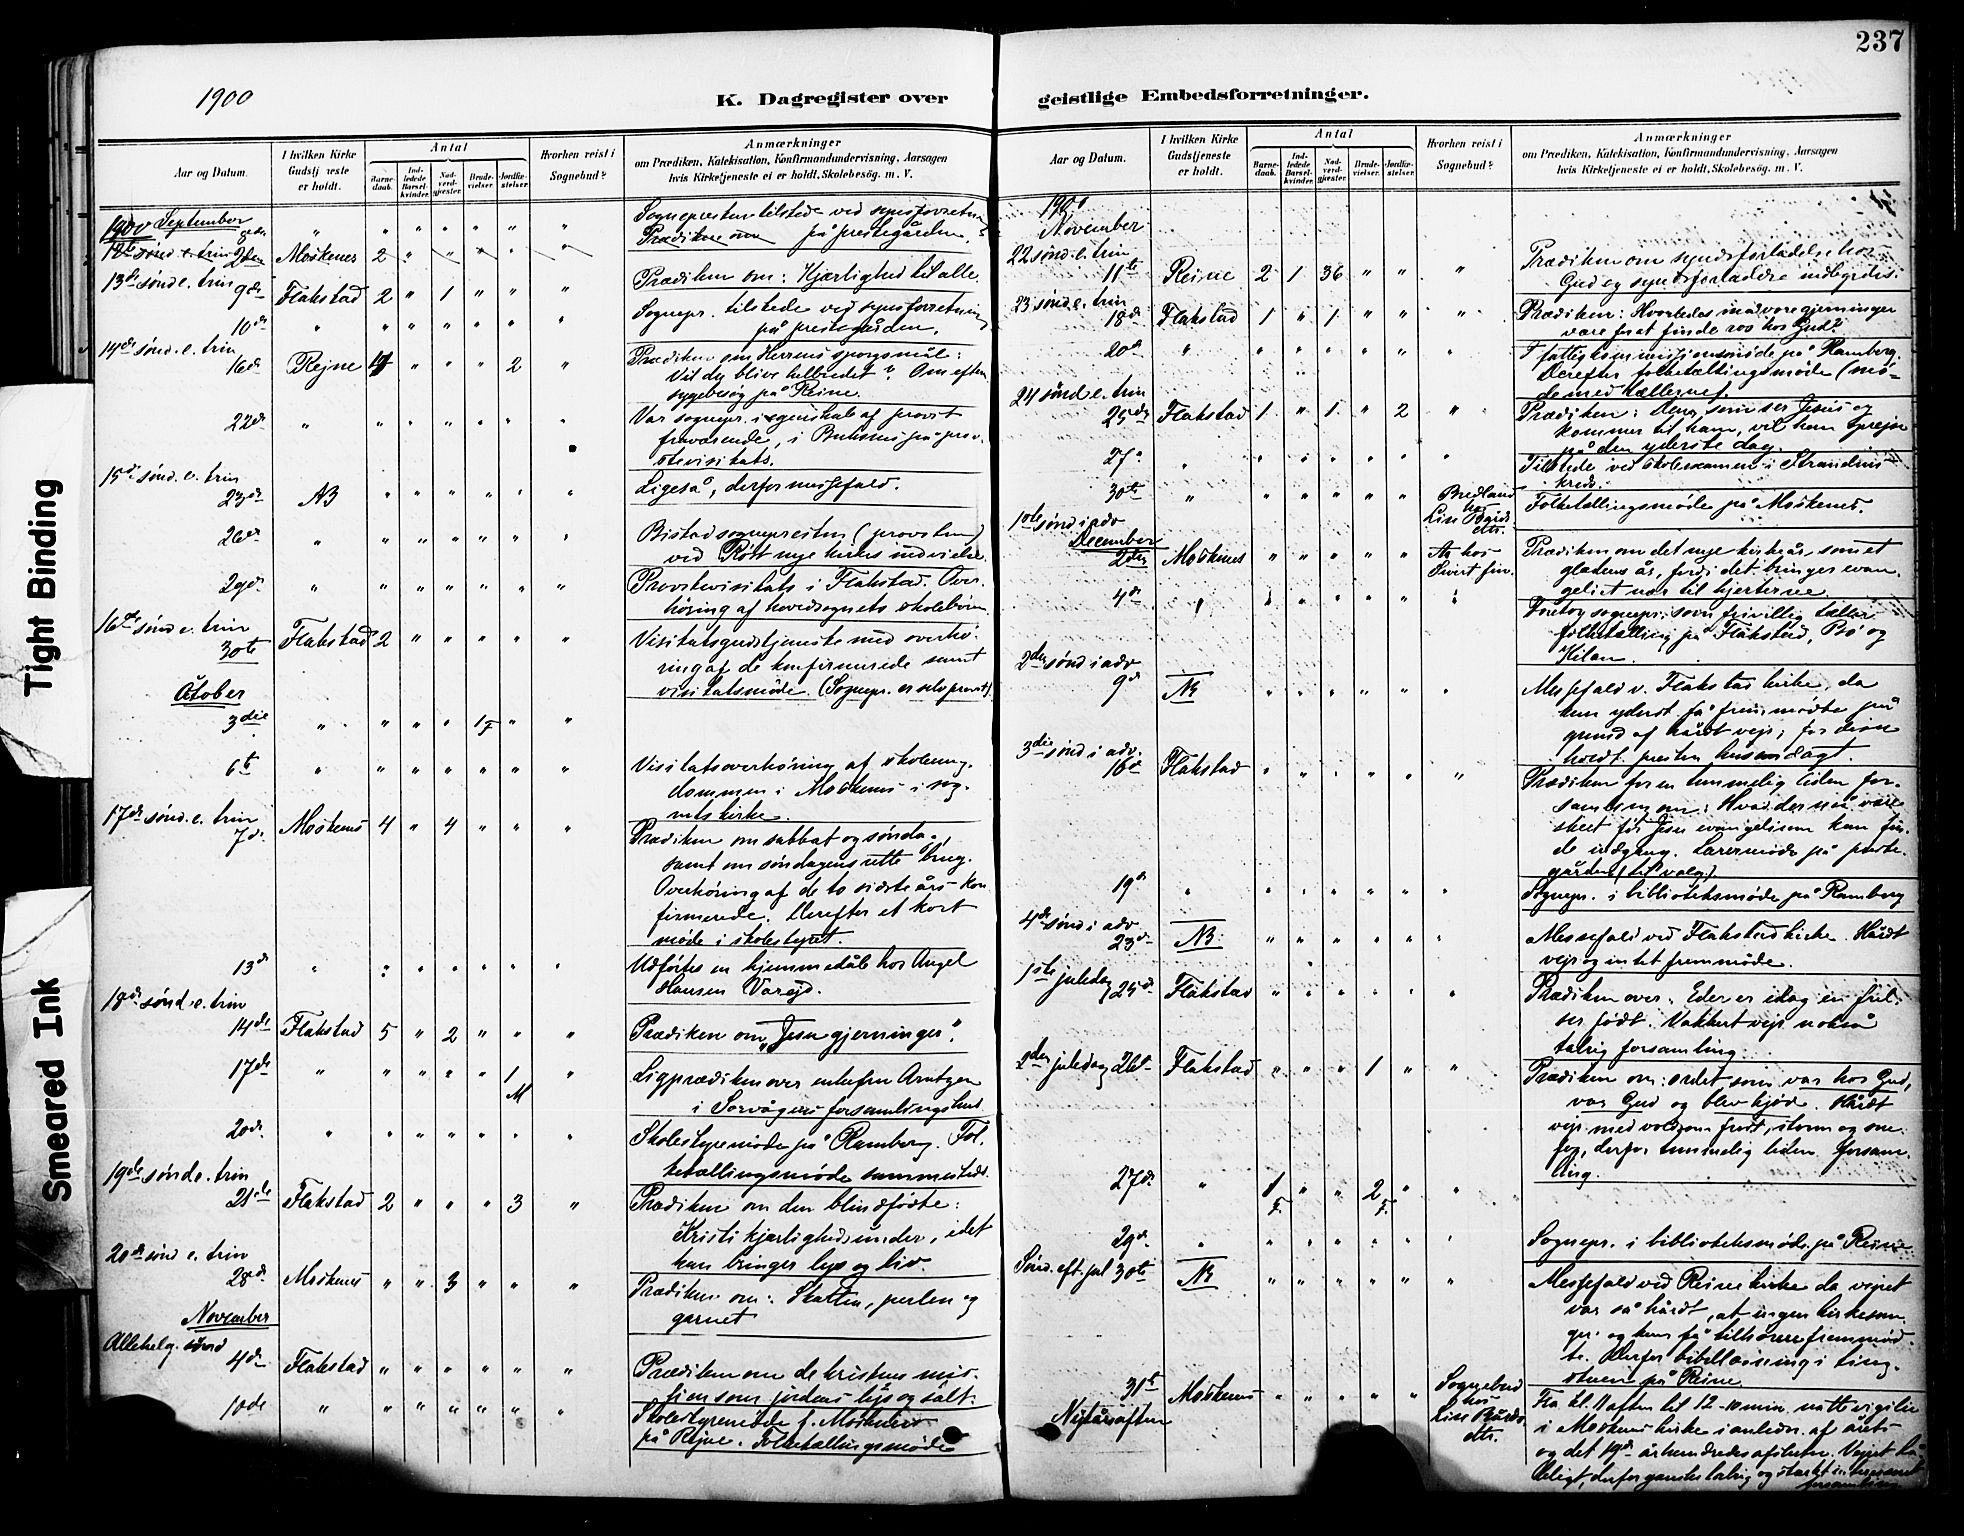 237
1900
K. Dagregister over geistlige Embedsforretninger.
Aar og Datum.
I hvilken Kirke Gudstjeneste er holdt.
Antal
Barnedaab.
Indledede Barselkvinder.
Nadverdgjæster.
Brudevielser.
Jordfæstelser.
Hvorhen reist i Sognebud?
Anmærkninger
om Prædiken, Katekisation, Konfirmandundervisning, Aarsagen
hvis Kirketjeneste ei er holdt, Skolebesøg. m. V.
1900 September
Sognepresten tilstede ved synsforretning
på prestegården.
12te sønd. e. trin 2den Moskenes 2
13de sønd. e. trin
9de Flakstad 2 " 1 " " " Prædiken om: Kjærlighed til alle.
10de " Sognepr. tilstede ved synsforretning
på prestegården.
14de sønd. e. trin
16de Rejne " " " 2 " Prædiken om Herrens spørgsmål:
Vil du blive helbredet? Om eften
sygebesøg på Reine.
22de " Var sognepr. i egenskab af provst
fraværende, i Buksnes på provstevisitats.
15de sønd. e. trin
23de NB Ligeså, derfor messefald.
26de " Bistod sognepresten (provsten)
ved Røst nye kirkes indvielse.
29de " Provstevisitats i Flakstad. Overhøring
af hovedsognets skolebørn.
16de sønd e. trin
30te Flakstad 2 " " " " " Visitatsgudstjeneste med overhøring
af de konfirmerede samt
visitatsmøde. (Sognepr. er selv provst).
October
3die " " " " 1 " "
F
6te " Visitatsoverhøring af skoleungdommen
i Moskenes i sognets
kirke.
17de sønd. e. trin
7de Moskenes 4 " 4 " " " Prædiken om sabbat og søndag,
samt om søndagens rette brug.
Overhøring af de to sidste års konfirmerede.
Derefter et kort
møde i skolestyret.
13de " Udførtes en hjemmedåb hos Angel
Hansen Varejd.
18de sønd. e. trin
14de Flakstad 5 " 2 " " " Prædiken om „Jesu gjerninger".
17de " " " " " 1 " Ligprædiken over enkefru Arntzen
M i Sørvågens forsamlingshus.
20de " Skolestyremøde på Ramberg. Folketællingsmøde
sammesteds.
19de sønd e. trin
21de Flakstad 2 " " " 3 " Prædiken om den blindfødte:
Kristi kjærligheds under, idet
han bringer lys og liv.
20de sønd e. trin
28de Moskenes " " 3 " " " Prædiken om: Skatten, perlen og
garnet
November
Allehelg. sønd
4de Flakstad " " " " " " Prædiken om de kristnes mission
som jordens lys og salt.
10de " Skolestyremøde f. Moskenes
på Rejne. Folketællingsmøde
1900
November
22 sønd. e. trin
11te Reine 2 1 36 " " " Prædiken om syndsforladelse hos
Gud og syndsforladere indbyrdes.
23 sønd e. trin
18de Flakstad 1 " 1 " " " Prædiken: Hvorledes må vore gjerninger
være for at finde ros hos Gud?
20de " I fattigkommissionsmøde på Ramberg.
Derefter folketællingsmøde (møde
med tællerne).
24 sønd e. trin
25de Flakstad 1 " 1 " 2 " Prædiken: Den, som ser Jesus og
kommer til ham, vil han oprejse
på den yderste dag.
27de " Tilstede ved skoleexamen i Strandnes
kreds.
30te " Bredland hos Lise Bårds dtr. Folketællingsmøde på Moskenes.
1ste sønd i adv
December
2den Moskenes " " " " " Aa hos Sivert Prædiken om det nye kirkeår, som et
glædens år, fordi det bringer evangeliet
nær til hjerterne.
4de " Foretog sognepr. som frivillig tæller
folketælling på Flakstad, Bø og
Kilan.
2den sønd i adv
9de NB Messefald v. Flakstad kirke, da
kun yderst få fremmødte på
grund af hårdt vejr; for disse
holdt presten husandagt.
3die sønd i adv.
16de Flakstad Prædiken for en temmelig liden forsamling
om: Hvad der må være
skeet før Jesu evangelium kan finde
indgang. Lærermøde på prestegården
(til valg.)
19de " Sognepr. i biblioteksmøde på Ramberg
4de sønd i adv
23de NB. Messefald ved Flakstad kirke. Hårdt
vejr og intet fremmøde.
1ste juledag 25de Flakstad Prædiken over: Eder er idag en frelser
født. Vakkert vejr också
talrig forsamling.
2den juledag 26t Flakstad " " " 1 " " Prædiken om: ordet som var hos Gud,
var Gud og blev kjød. Hårdt
vejr med voldsom frost, storm og snefog,
derfor temmelig liden forsamling.
27de " 1 " " 2 " "
F. F.
29de " Sognepr. i biblioteksmøde på Reine
Sønd. eft. jul 30te NB Messefald ved Reine kirke da vejret
var så hårdt, at ingen kirkesanger
og kun få tilhørere fremmødte.
Derfor bibellæsning i tingstuen
på Reine.
31te Moskenes " " " " " Sognebud hos Lise Bårds dtr. Fra kl. 11 aften til 12-10 min. nattevigilie
Nytårsaften i Moskenes kirke i anledn. af årets
og det 19de århundredes afslutn. Vejret
derfor ganske talrig og stærkt interesseret
forsamling.